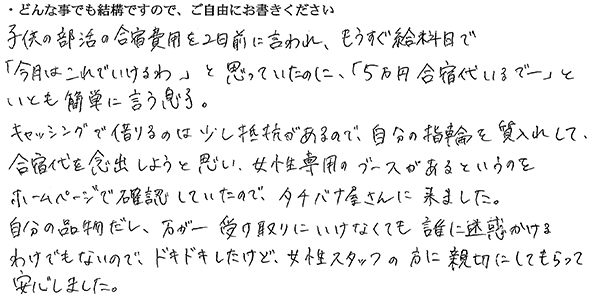 ・どんな事でも結構ですので、ご自由にお書きください
子供の部活の合宿費用を2日前に言われ、もうすぐ給料日で
「今月はこれでいけるわ」と思っていたのに、「5万円合宿代いるでー」と
いとも簡単に言う息子。
キャッシングで借りるのは少し抵抗があるので、自分の指輪を質入れして、
合宿代を念出しようと思い、女性専用のブースがあるというのを
ホームページで確認していたので、タチバナ屋さんに来ました。
自分の品物だし、万が一受け取りにいけなくても誰に迷惑かける
わけでもないので、ドキドキしたけど、女性スタッフの方に親切にしてもらって
安心しました。